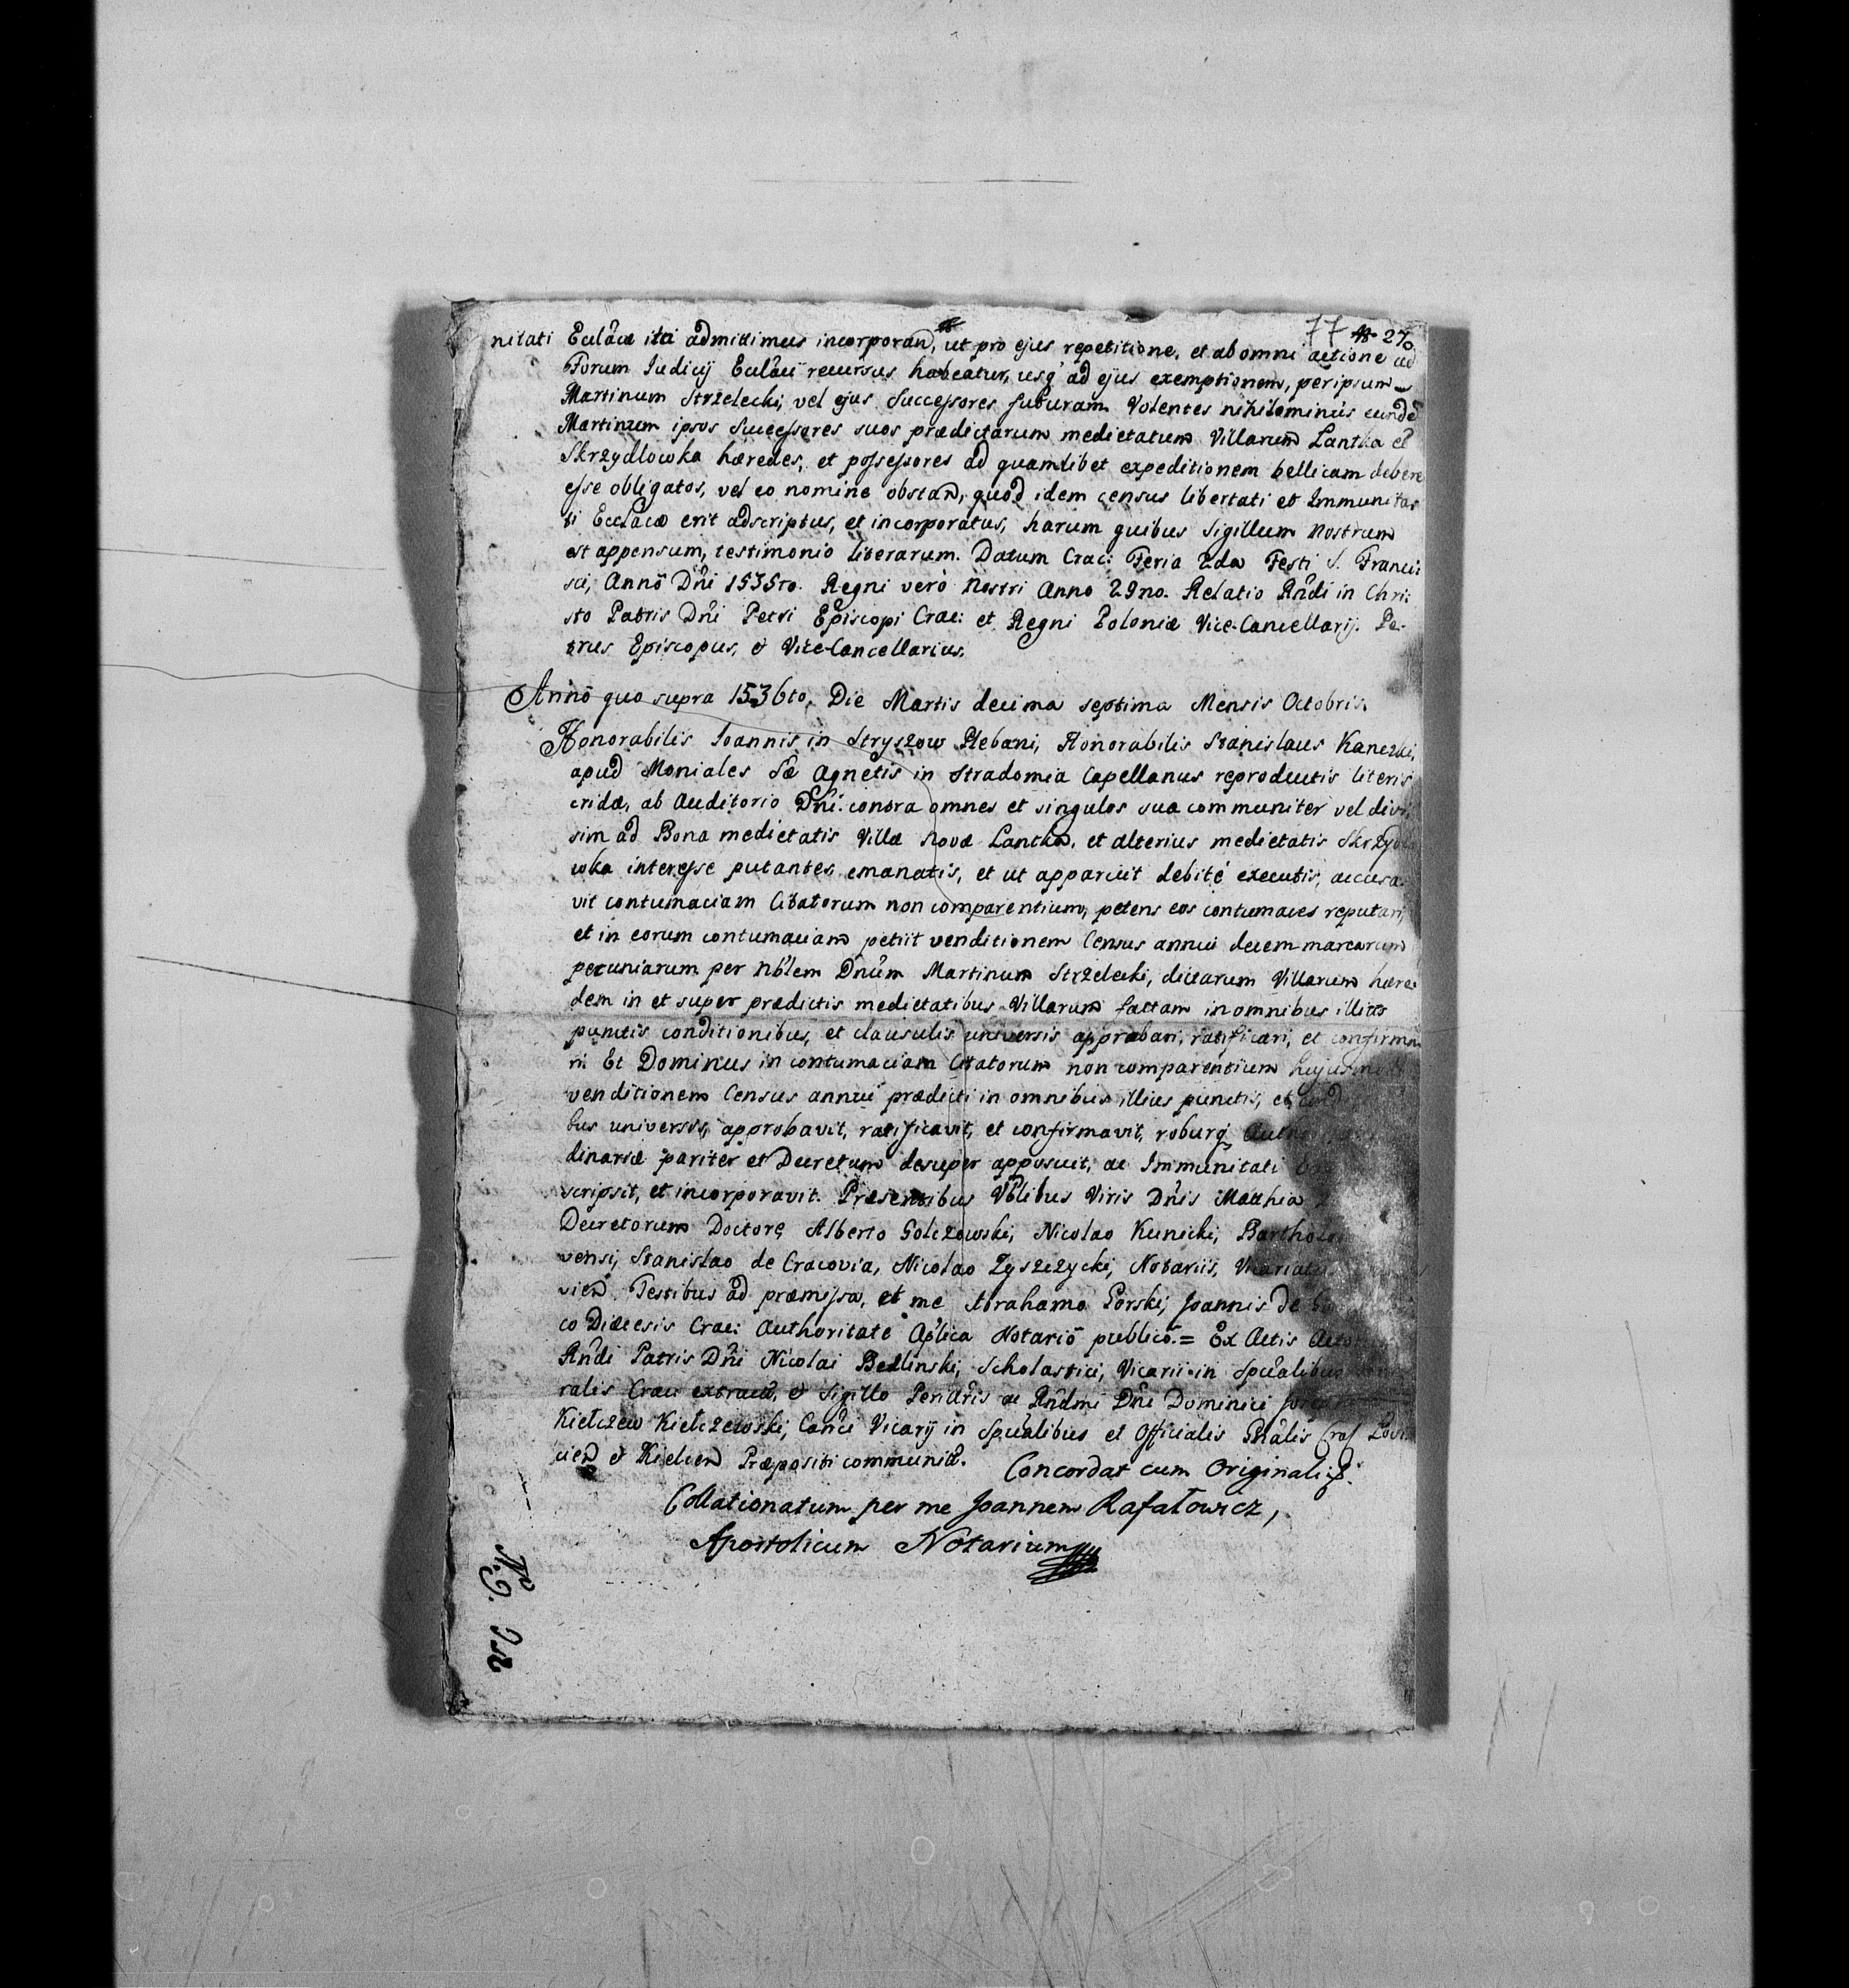 77 270
nitati Ecclâæ ita admittimus incorporan̄, ut pro ejus repetitione, et ab omni actione ad
Forum Iudicij Ecclâii recursus habeatur, usq' ad ejus exemptionem, per ipsum
Martinum Strzelecki, vel ejus Successores futuram. Volentes nihilominùs eundē
Martinum ipsos Successores suos prædictarum medietatum Villarum Lantka et
Skrzydlowka hæredes, et possessores ad quamlibet expeditionem bellicam debere
esse obligatos, vel eo nomine obstan̄, quod idem census libertati et Immunita-
ti Ecclâcæ erit adscriptus, et incorporatus, harum quibus Sigillum Nostrum
est appensum, testimonio literarum. Datum Crac: Feria 2da Festi S. Franci:
sci, Annô Dn̂i 1535to. Regni verò Nostri Anno 29no. Relatio Rn̂di in Chri:
sto Patris Dn̂i Petri Episcopi Crac: et Regni Poloniæ Vice-Cancellarij. Pe-
trus Episcopus, & Vice-Cancellarius.
Annô quo supra 1536to, Die Martis decima septima Mensis Octobris.
Honorabilis Ioannis in Stryszow Plebani, Honorabilis Stanislaus Kanezki,
apud Moniales Sæ Agnetis in Stradomia Capellanus reproductis literis
cridæ, ab Auditorio Dn̂i contra omnes et singulos sua communiter vel divi,
sim ad Bona medietatis Villæ Novæ Lantka, et alterius medietatis Skrzydlo
wka interesse putantes emanatis, et ut apparuit debitè executis, accusa-
vit contumaciam Citatorum non comparentium, petens eos contumaces reputari,
et in eorum contumaciam petiit venditionem Census annui decem marcarum
pecuniarum per Nb'lem Dn̂um Martinum Strzelecki, dictarum Villarum hære-
dem in et super prædictis medietatibus Villarum factam in omnibus illius
punctis conditionibus, et clausulis universis approbari, ratificari, et confirma
ri. Et Dominus in contumaciam Citatorum non comparentium hujusmodi
venditionem Census annui prædicti in omnibus illius punctis, et
bus universis, approbavit, ratificavit, et confirmavit, roburq'
dinariæ pariter et Decretum desuper apposuit, ac Immunitati
scripsit, et incorporavit. Præsentibus Vb̂libus Viris Dn̂is Matthia
Decretorum Doctore Alberto Golczowski, Nicolao Kunicki, Bartholo
vensi, Stanislao de Cracovia, Nicolao Zyszczycki, Notariis, Vicariatus
vien̄. Testibus ad præmissa, et me Abrahamo Gorski, Joannis de
co Diæcesis Crac: Authoritate Ap'lica Notariô publicô. = Ex Actis
Rn̂di Patris Dn̂i Nicolai Bedlinski, Scholastici, Vicarii in Spûalibus
ralis Crac: extract, & Sigillo Pen̂dûis ac Rn̂dmi Dn̂i Dominici
Kiełczew Kiełczewski, Can̂ci Vicarij in Spûalibus et Officialis Gn̂alis Crac: Lovi
cien̄ & Kielcen̄ Præpositi communit. Concordat cum Originali
Collationatum per me Joannem Rafałowicz,
Apostolicum Notarium